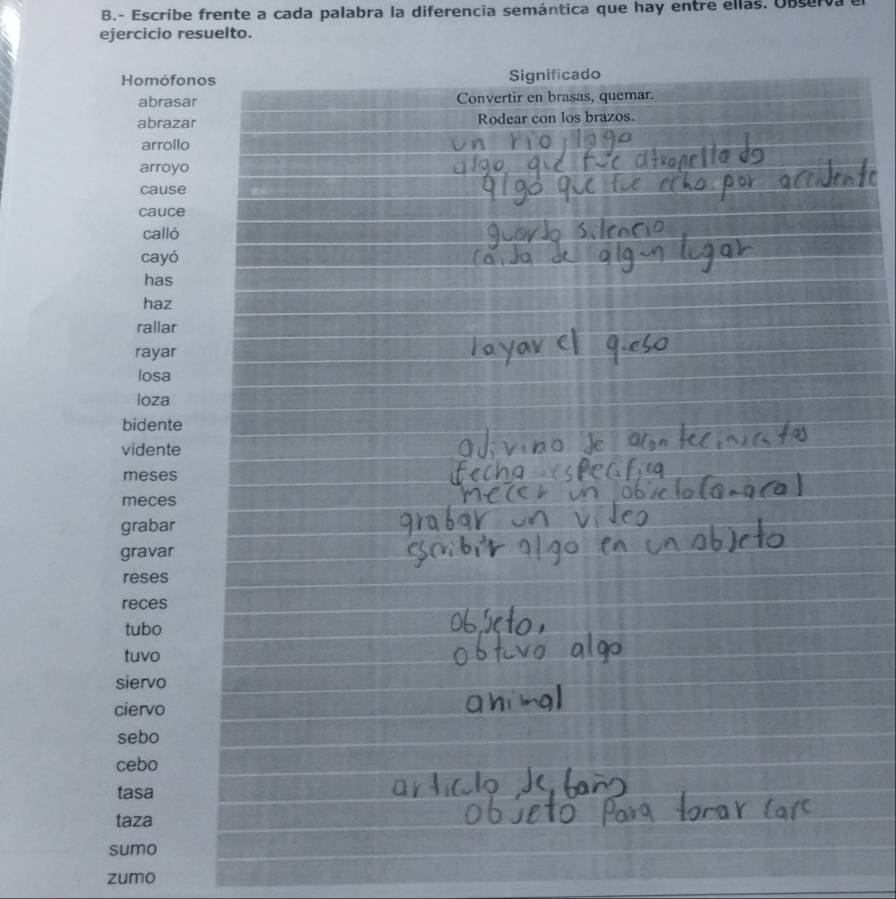 B.- Escribe frente a cada palabra la diferencia semántica que hay entre ellas. Observa el
ejercicio resuelto.
Homófonos Significado
abrasar Convertir en brasas, quemar.
abrazar Rodear con los brazos.
arrollo un rio, lago
arroyo algo que fue atropellado
cause algo que fue echo por accidente
cauce
calló guardo silencio
cayó caida de algun lugar
has
haz
rallar
rayar rayar el queso
losa
loza
bidente
vidente adivino de acontecimientos
meses fecha especifica
meces mecer un objeto
grabar grabar un video
gravar escribir algo en un objeto
reses
reces
tubo objeto.
tuvo obtuvo algo
siervo
ciervo animal
sebo
cebo
tasa articulo de baño
taza objeto para tomar cafe
sumo
zumo